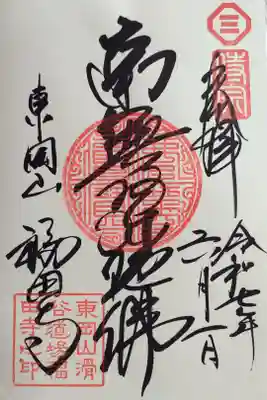 奉拝
令和七年
月一日
南無阿弥陀佛
東岡山
福田寺
三
時宗
東岡山滑
谷道場福
田寺之印